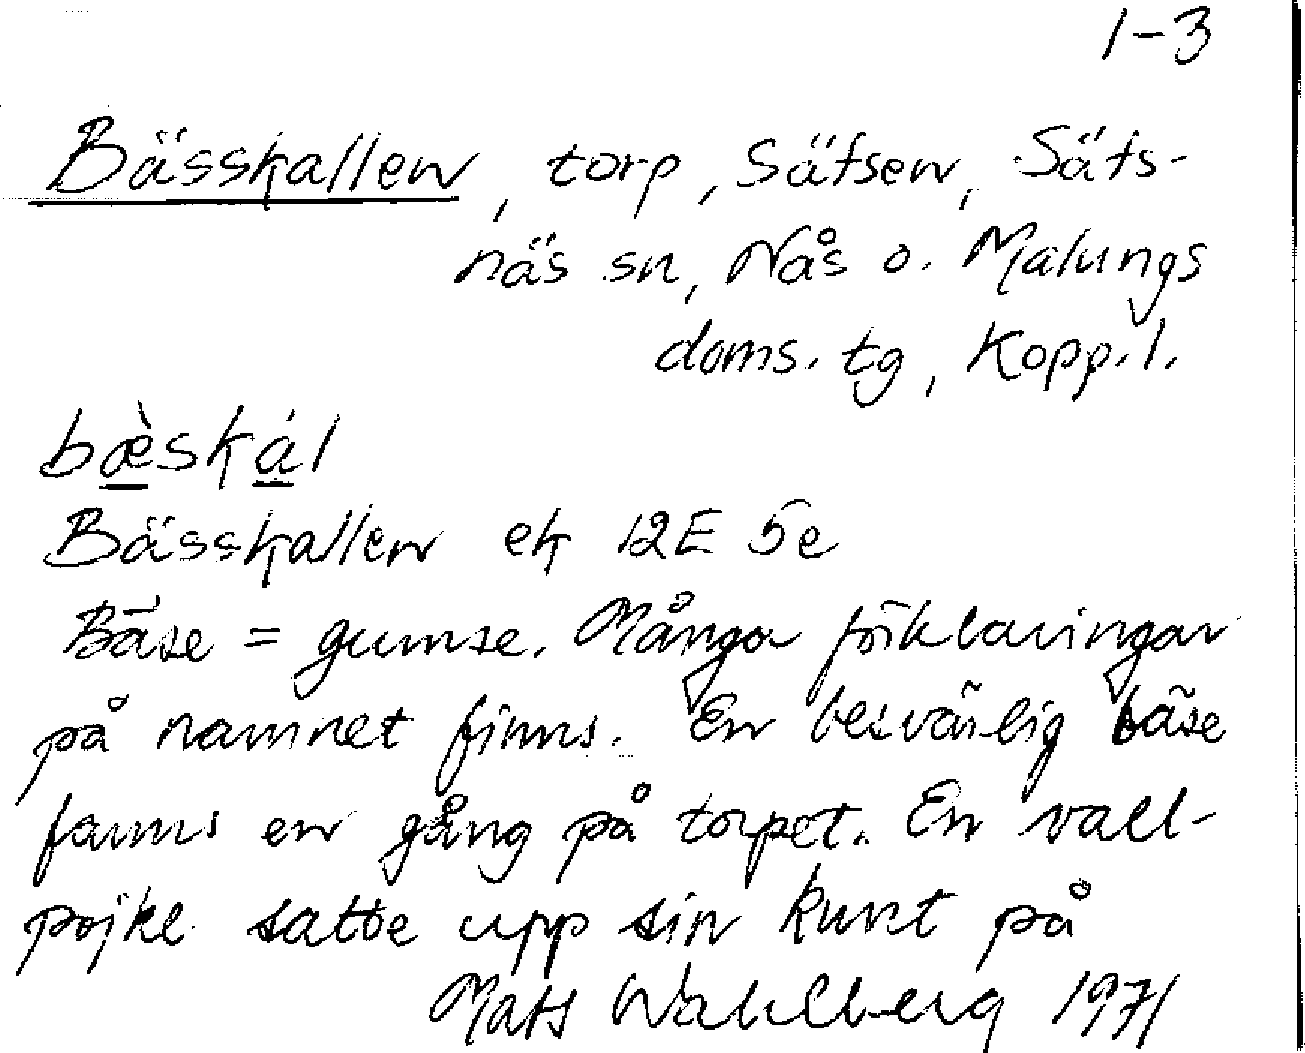 1-3
Bässkallen, torp, Sätsen, Säts-
näs sn, Nås o. Malungs
doms. tg, Kopp. l.
bæ̀skál
Bässkallen ek 12E 5e
Bäse = gumse. Många förklaringar
på namnet finns. En besvärlig bäse
fanns en gång på torpet. En vall-
pojke satte upp sin kunt på
Mats Wahlberg 1971